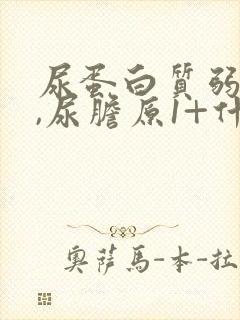 尿蛋白質弱
,尿膽原1+什
奧薩馬-本-拉